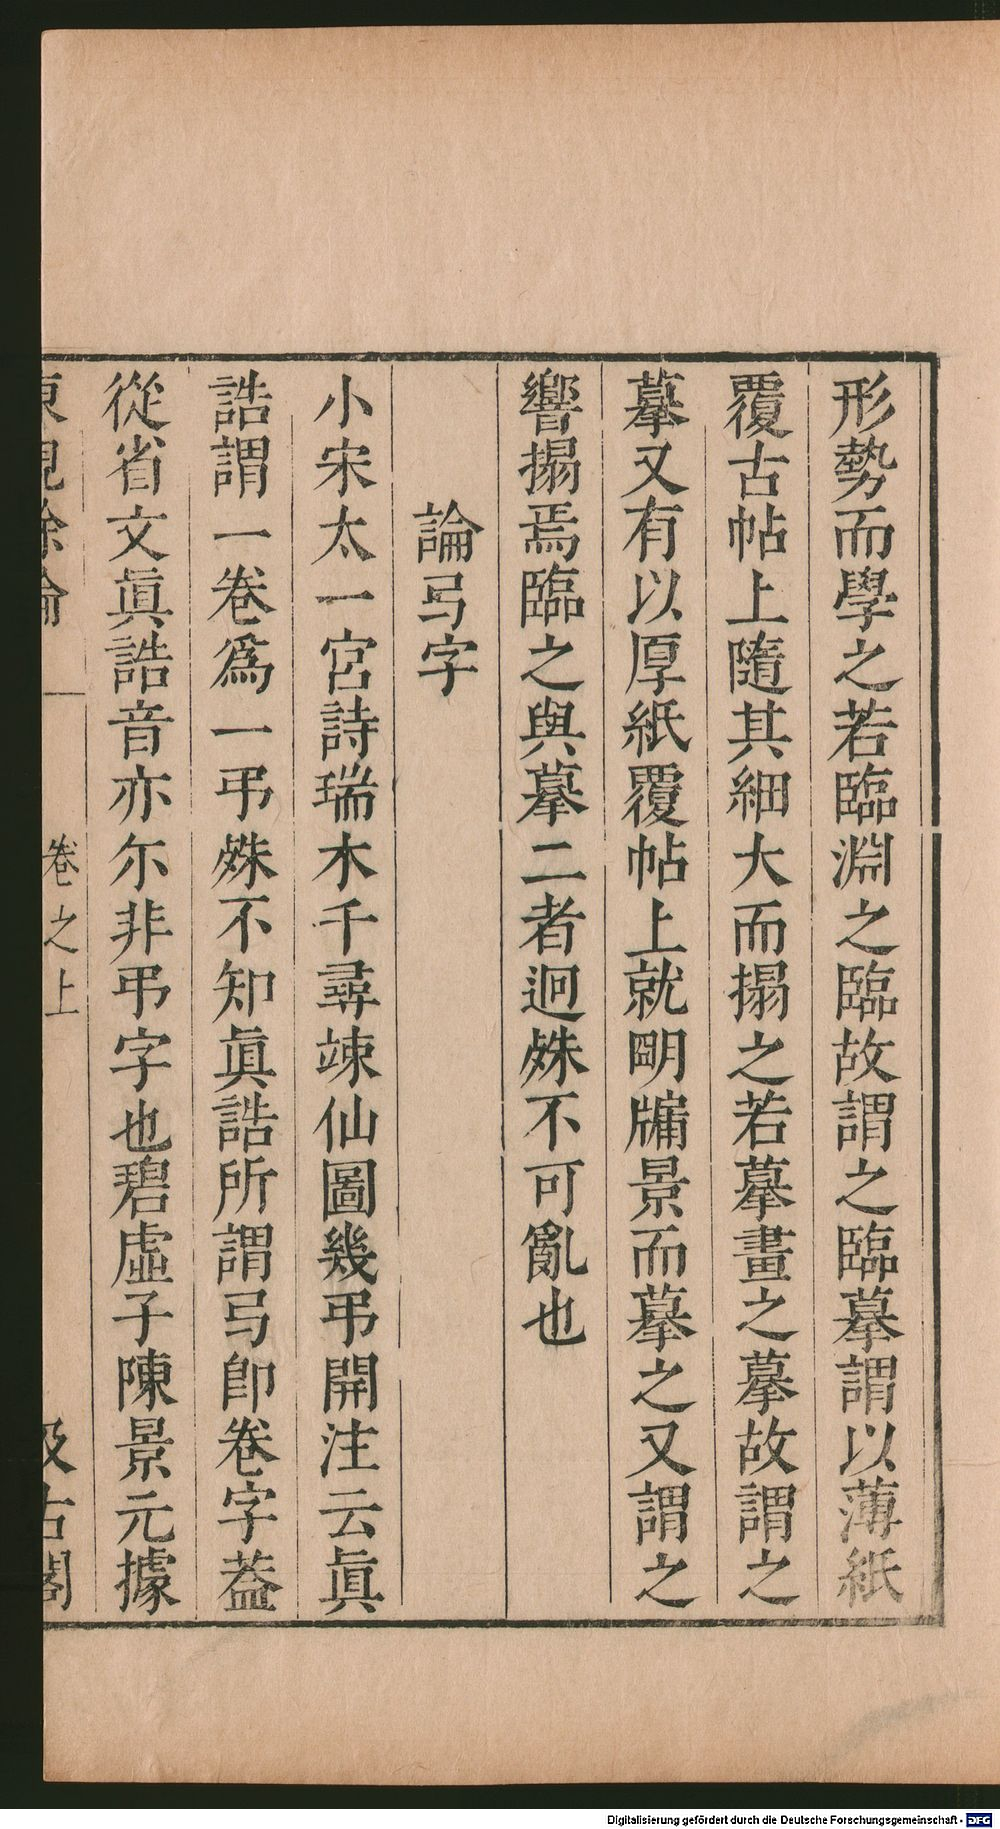 形勢而學之若臨淵之臨故謂之臨摹謂以薄紙
覆古帖上隨其細大而搨之若摹畫之摹故謂之
摹又有以厚紙覆帖上就明牖景而摹之又謂之
響搨焉臨之與摹二者迥殊不可亂也
論弓字
小宋太一宮詩瑞木千尋竦仙圖幾弔開注云眞
誥謂一卷爲一弔殊不知眞誥所謂弓卽卷字葢
從省文眞誥音亦尓非弔字也碧虛子陳景元據
東觀餘論 卷之上 汲古閣
Digitalisierung gefördert durch die Deutsche Forschungsgemeinschaft - DFG